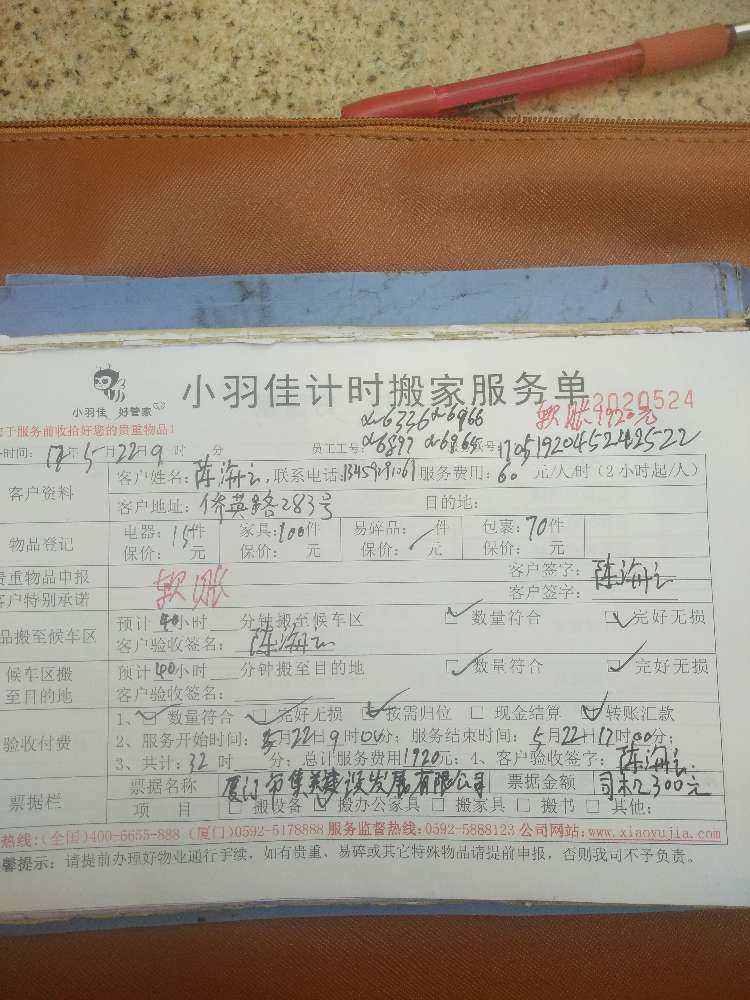 小羽佳 好管家
小羽佳计时搬家服务单
2020524
软账1920元
于服务前收拾好您的贵重物品!
6336 6966
6897 6965
时间:17年5月22日9时 分 员工工号: 1705192045242522
客户资料 客户姓名:陈海云 联系电话: 服务费用:60元/人/时(2小时起/人)
客户地址:侨英路283号 目的地:
物品登记 电器:15件 家具:100件 易碎品: 件 包裹:70件
保价: 元 保价: 元 保价: 元 保价: 元
贵重物品申报 软账 客户签字:陈海云
客户特别承诺 客户签字:
品搬至候车区 预计40小时 分钟搬至候车区 数量符合 完好无损
客户验收签名:陈海云
候车区搬至目的地 预计40小时 分钟搬至目的地 数量符合 完好无损
客户验收签名:
验收付费 1、数量符合 完好无损 按需归位 现金结算 转账汇款
2、服务开始时间:5月22日9时00分;服务结束时间:5月22日17时00分;
3、共计:32时 分;总计服务费用1920元;4、客户验收签字:陈海云
票据栏 票据名称 厦门市集美建设发展有限公司 票据金额 2300元
项 目 搬设备 搬办公家具 搬家具 搬书 其他:
热线:(全国)400-6655-888 (厦门)0592-5178888 服务监督热线:0592-5888123 公司网站:www.xiaoyujia.com
馨提示:请提前办理好物业通行手续,如有贵重、易碎或其它特殊物品请提前申报,否则我司不予负责。